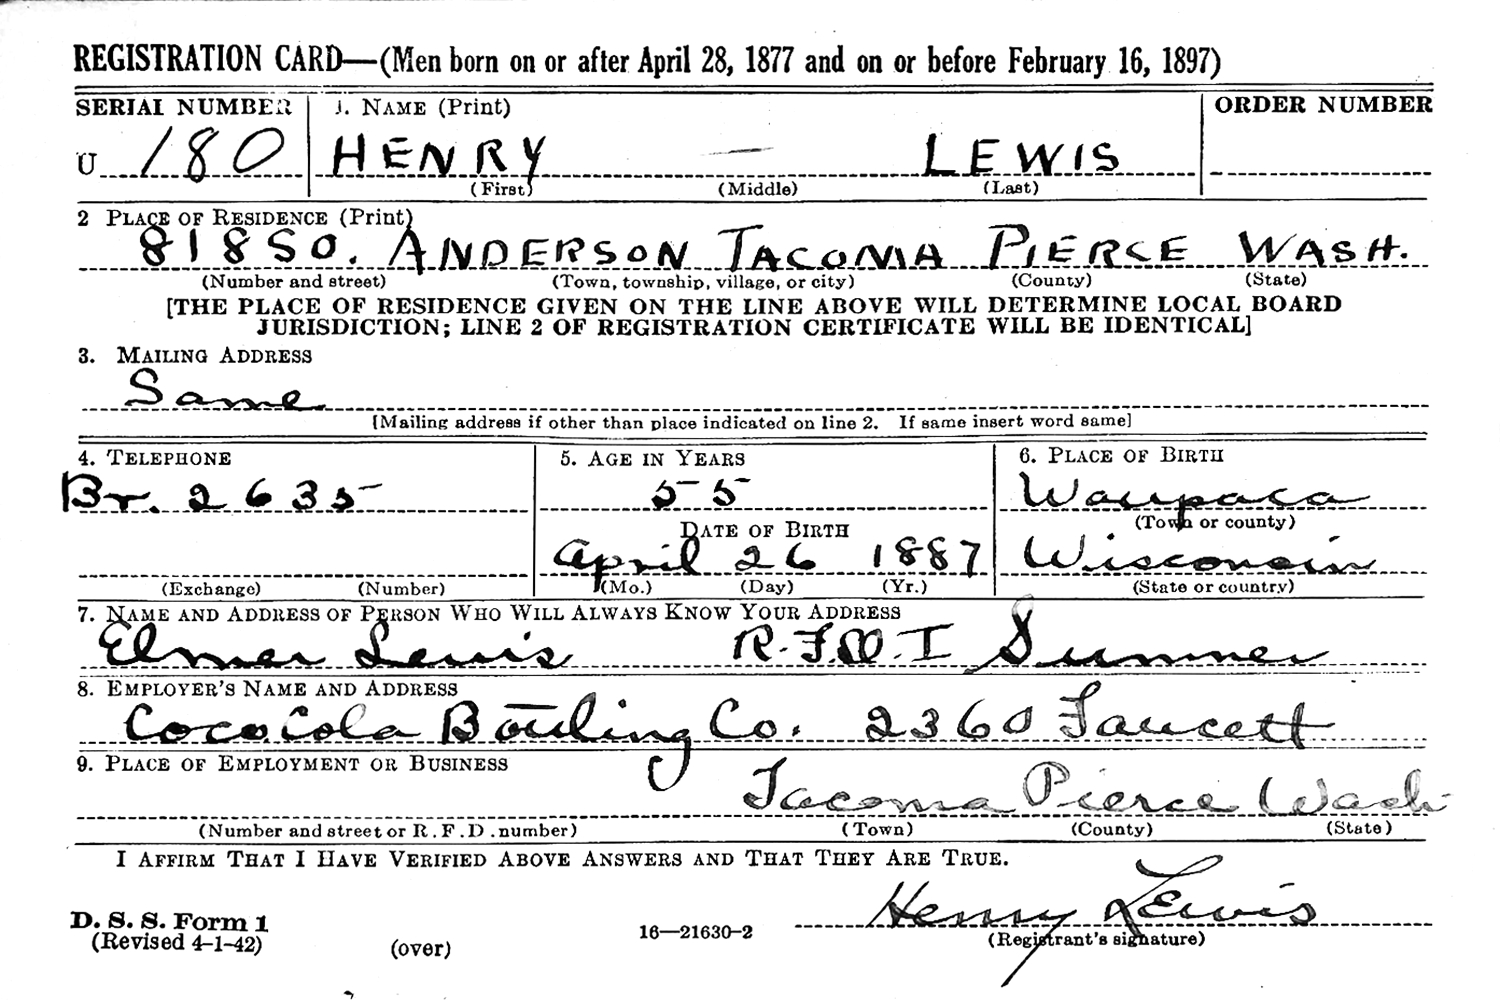 REGISTRATION CARD—(Men born on or after April 28, 1877 and on or before February 16, 1897)
SERIAL NUMBER 1. NAME (Print) ORDER NUMBER
U 180 HENRY — LEWIS
(First) (Middle) (Last)
2 PLACE OF RESIDENCE (Print)
818 SO. ANDERSON TACOMA PIERCE WASH.
(Number and street) (Town, township, village, or city) (County) (State)
[THE PLACE OF RESIDENCE GIVEN ON THE LINE ABOVE WILL DETERMINE LOCAL BOARD
JURISDICTION; LINE 2 OF REGISTRATION CERTIFICATE WILL BE IDENTICAL]
3. MAILING ADDRESS
Same
[Mailing address if other than place indicated on line 2. If same insert word same]
4. TELEPHONE 5. AGE IN YEARS 6. PLACE OF BIRTH
Br. 2635 55 Waupaca
DATE OF BIRTH (Town or county)
April 26 1887 Wisconsin
(Exchange) (Number) (Mo.) (Day) (Yr.) (State or country)
7. NAME AND ADDRESS OF PERSON WHO WILL ALWAYS KNOW YOUR ADDRESS
Elmer Lewis R.F.D. I Sumner
8. EMPLOYER'S NAME AND ADDRESS
Coca Cola Bottling Co. 2360 Faucett
9. PLACE OF EMPLOYMENT OR BUSINESS
Tacoma Pierce Wash
(Number and street or R. F. D. number) (Town) (County) (State)
I AFFIRM THAT I HAVE VERIFIED ABOVE ANSWERS AND THAT THEY ARE TRUE.
Henry Lewis
D. S. S. Form 1
(Revised 4-1-42) (over) 16—21630-2 (Registrant's signature)